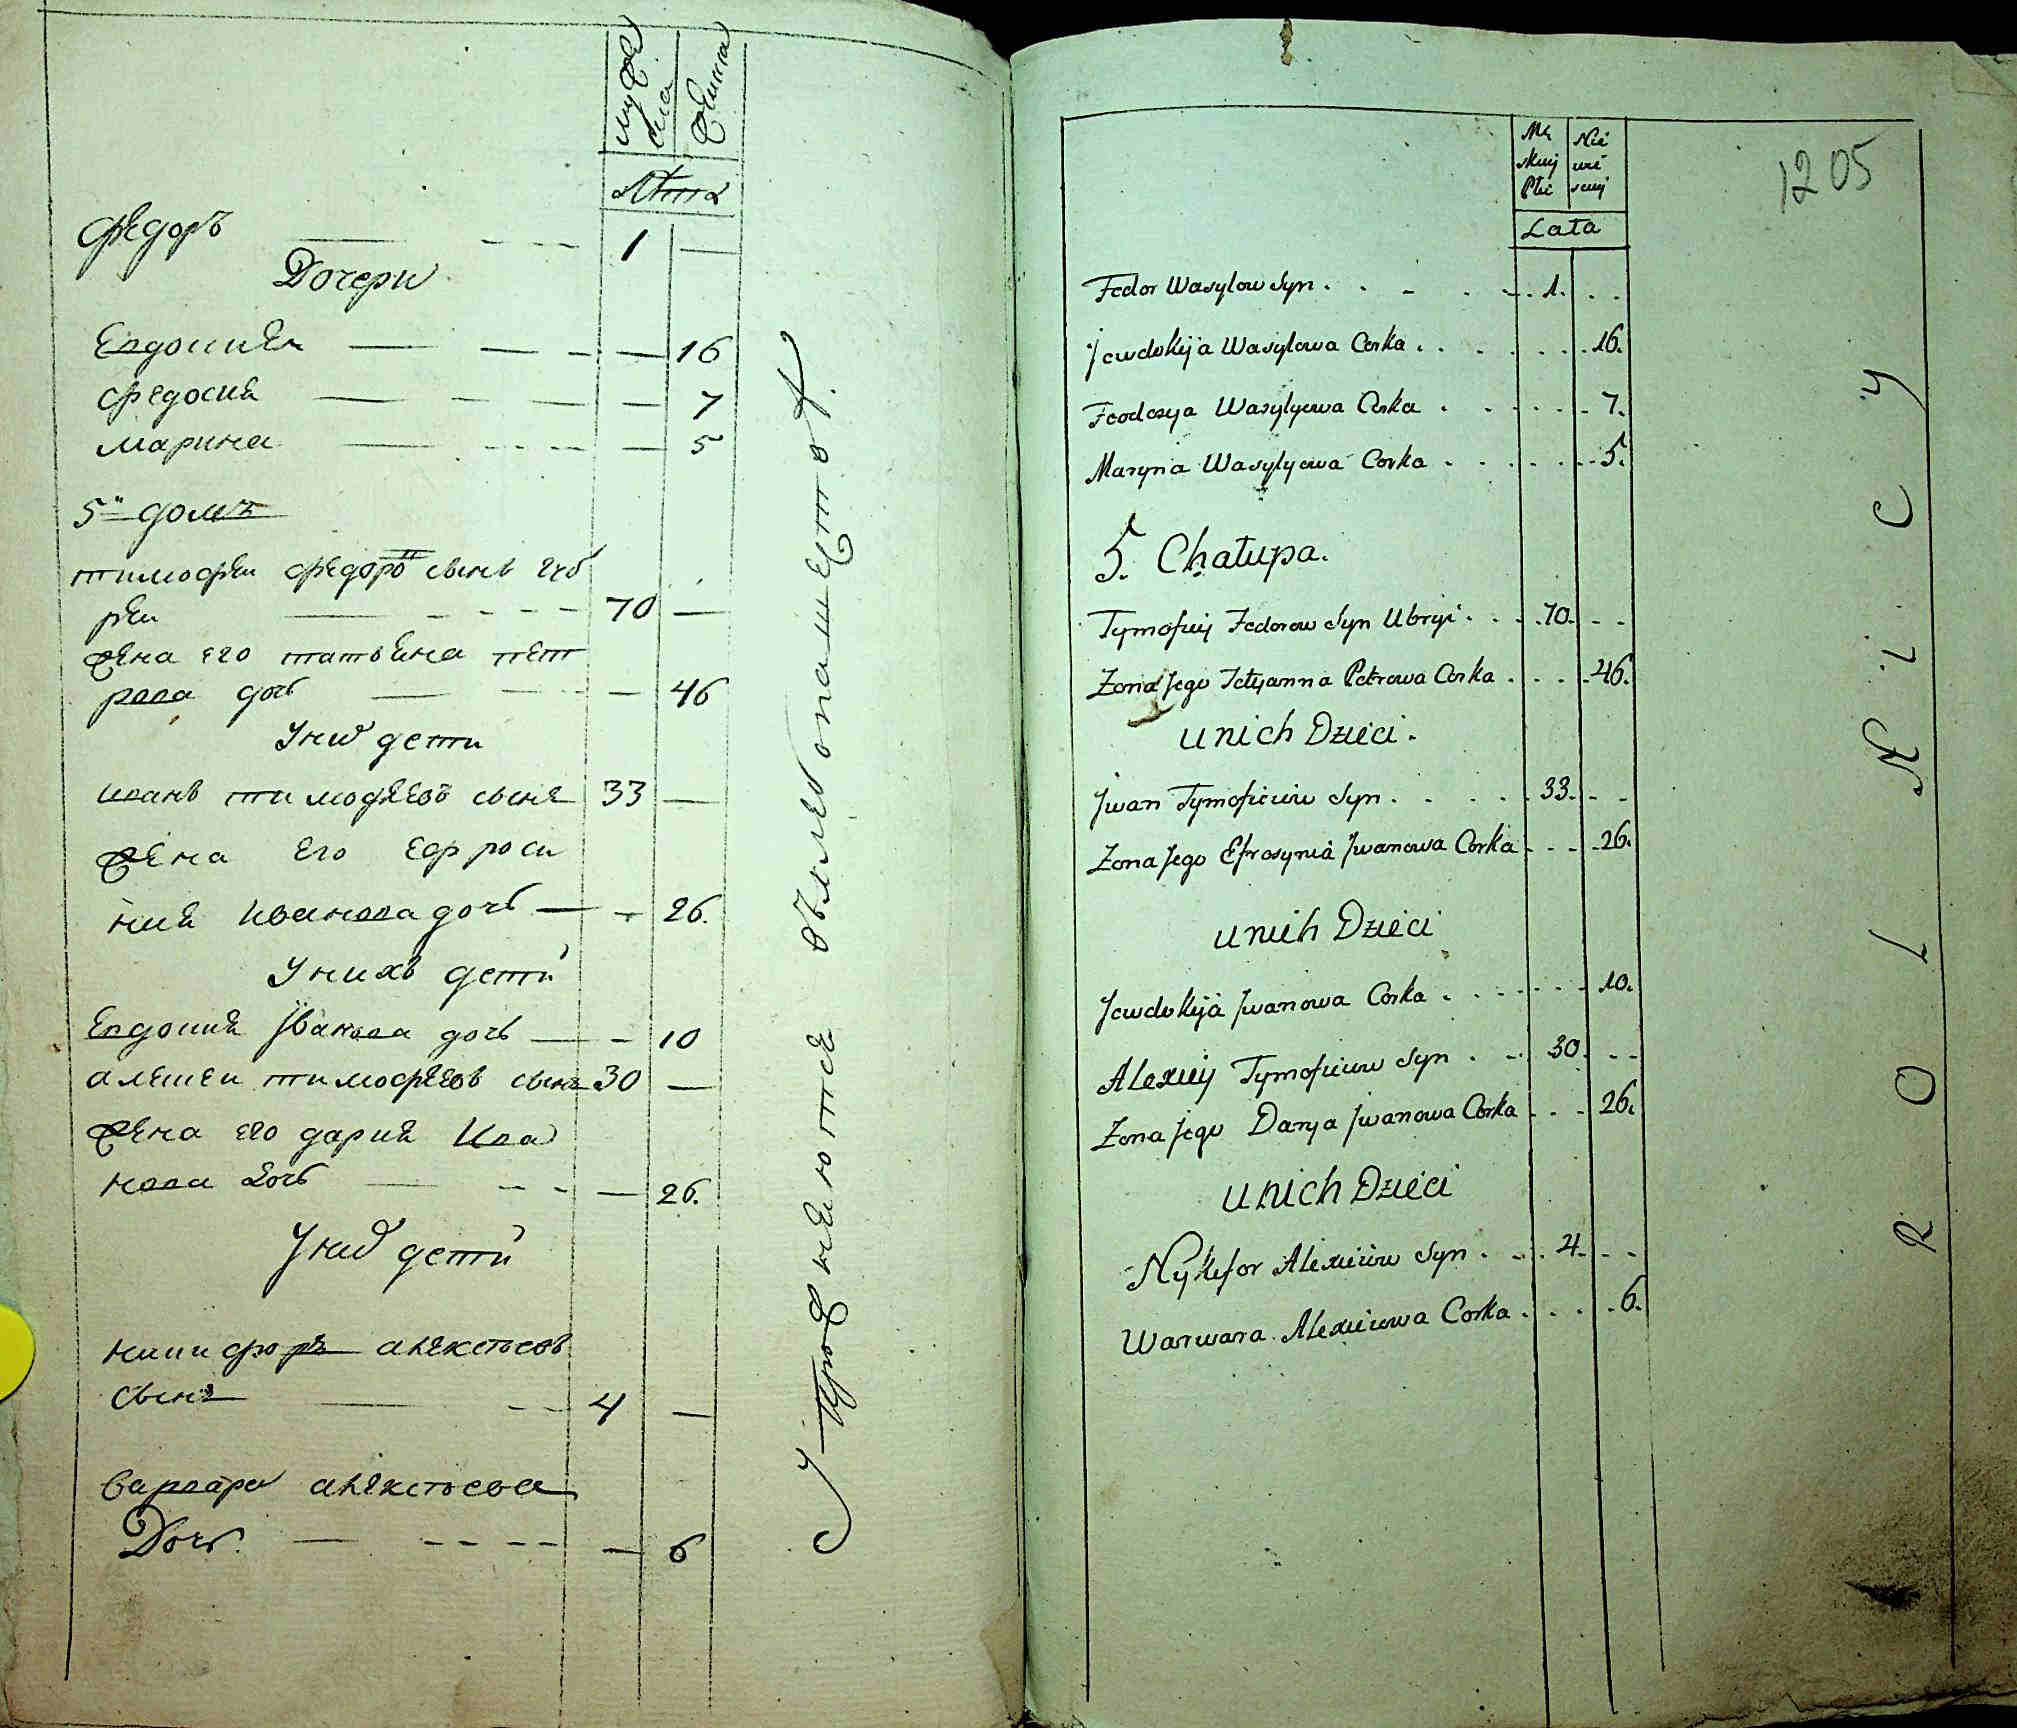 мужеска
женска
Лѣта
Федоръ — — — — 1 —
Дочери
Евдокия — — — — 16
Федосия — — — — 7
Марина — — — — 5
5й домъ
тимофеи федоров сынъ губ
реи — — — — 70 —
жена его татьяна пет
рова дочь — — — 46
У них дети
иванъ тимофеевъ сынъ 33 —
жена его ефроси
ния иванова дочь — — 26.
У нихъ дети
Евдокия Иванова дочь — — 10
алексеи тимофеевъ сынъ 30 —
жена его дария Ива
нова дочь — — — — 26.
У них дети
никифоръ алексеевъ
сынъ — — — 4 —
варвара алексеева
Дочь. — — — — — 6
Упражняются въ хлебопашестве.
1205
Męskiej Płci
Niewieściej
Lata
Fedor Wasylow Syn . . . . 1. . .
Jewdokija Wasylowa Corka . . . . . 16.
Feodosya Wasylyewa Corka . . . . . 7.
Maryna Wasylyewa Corka . . . . . 5.
5. Chałupa.
Tymofiej Fedorow Syn Ubryi . . . 70. . .
Zona Jego Tetyanna Petrowa Corka . . . 46.
u nich Dzieci.
Jwan Tymofieiow Syn . . . . 33. . .
Zona Jego Efrosynia Jwanowa Corka . . . 26.
u nich Dzieci
Jewdokija Jwanowa Corka . . . . . 10.
Alexiey Tymofieiow Syn . . . 30. . .
Zona Jego Darya Jwanowa Corka . . . 26.
u nich Dzieci
Nykefor Alexieiow Syn . . . 4. . .
Warwara Alexieiowa Corka . . . . 6.
ROLNICY